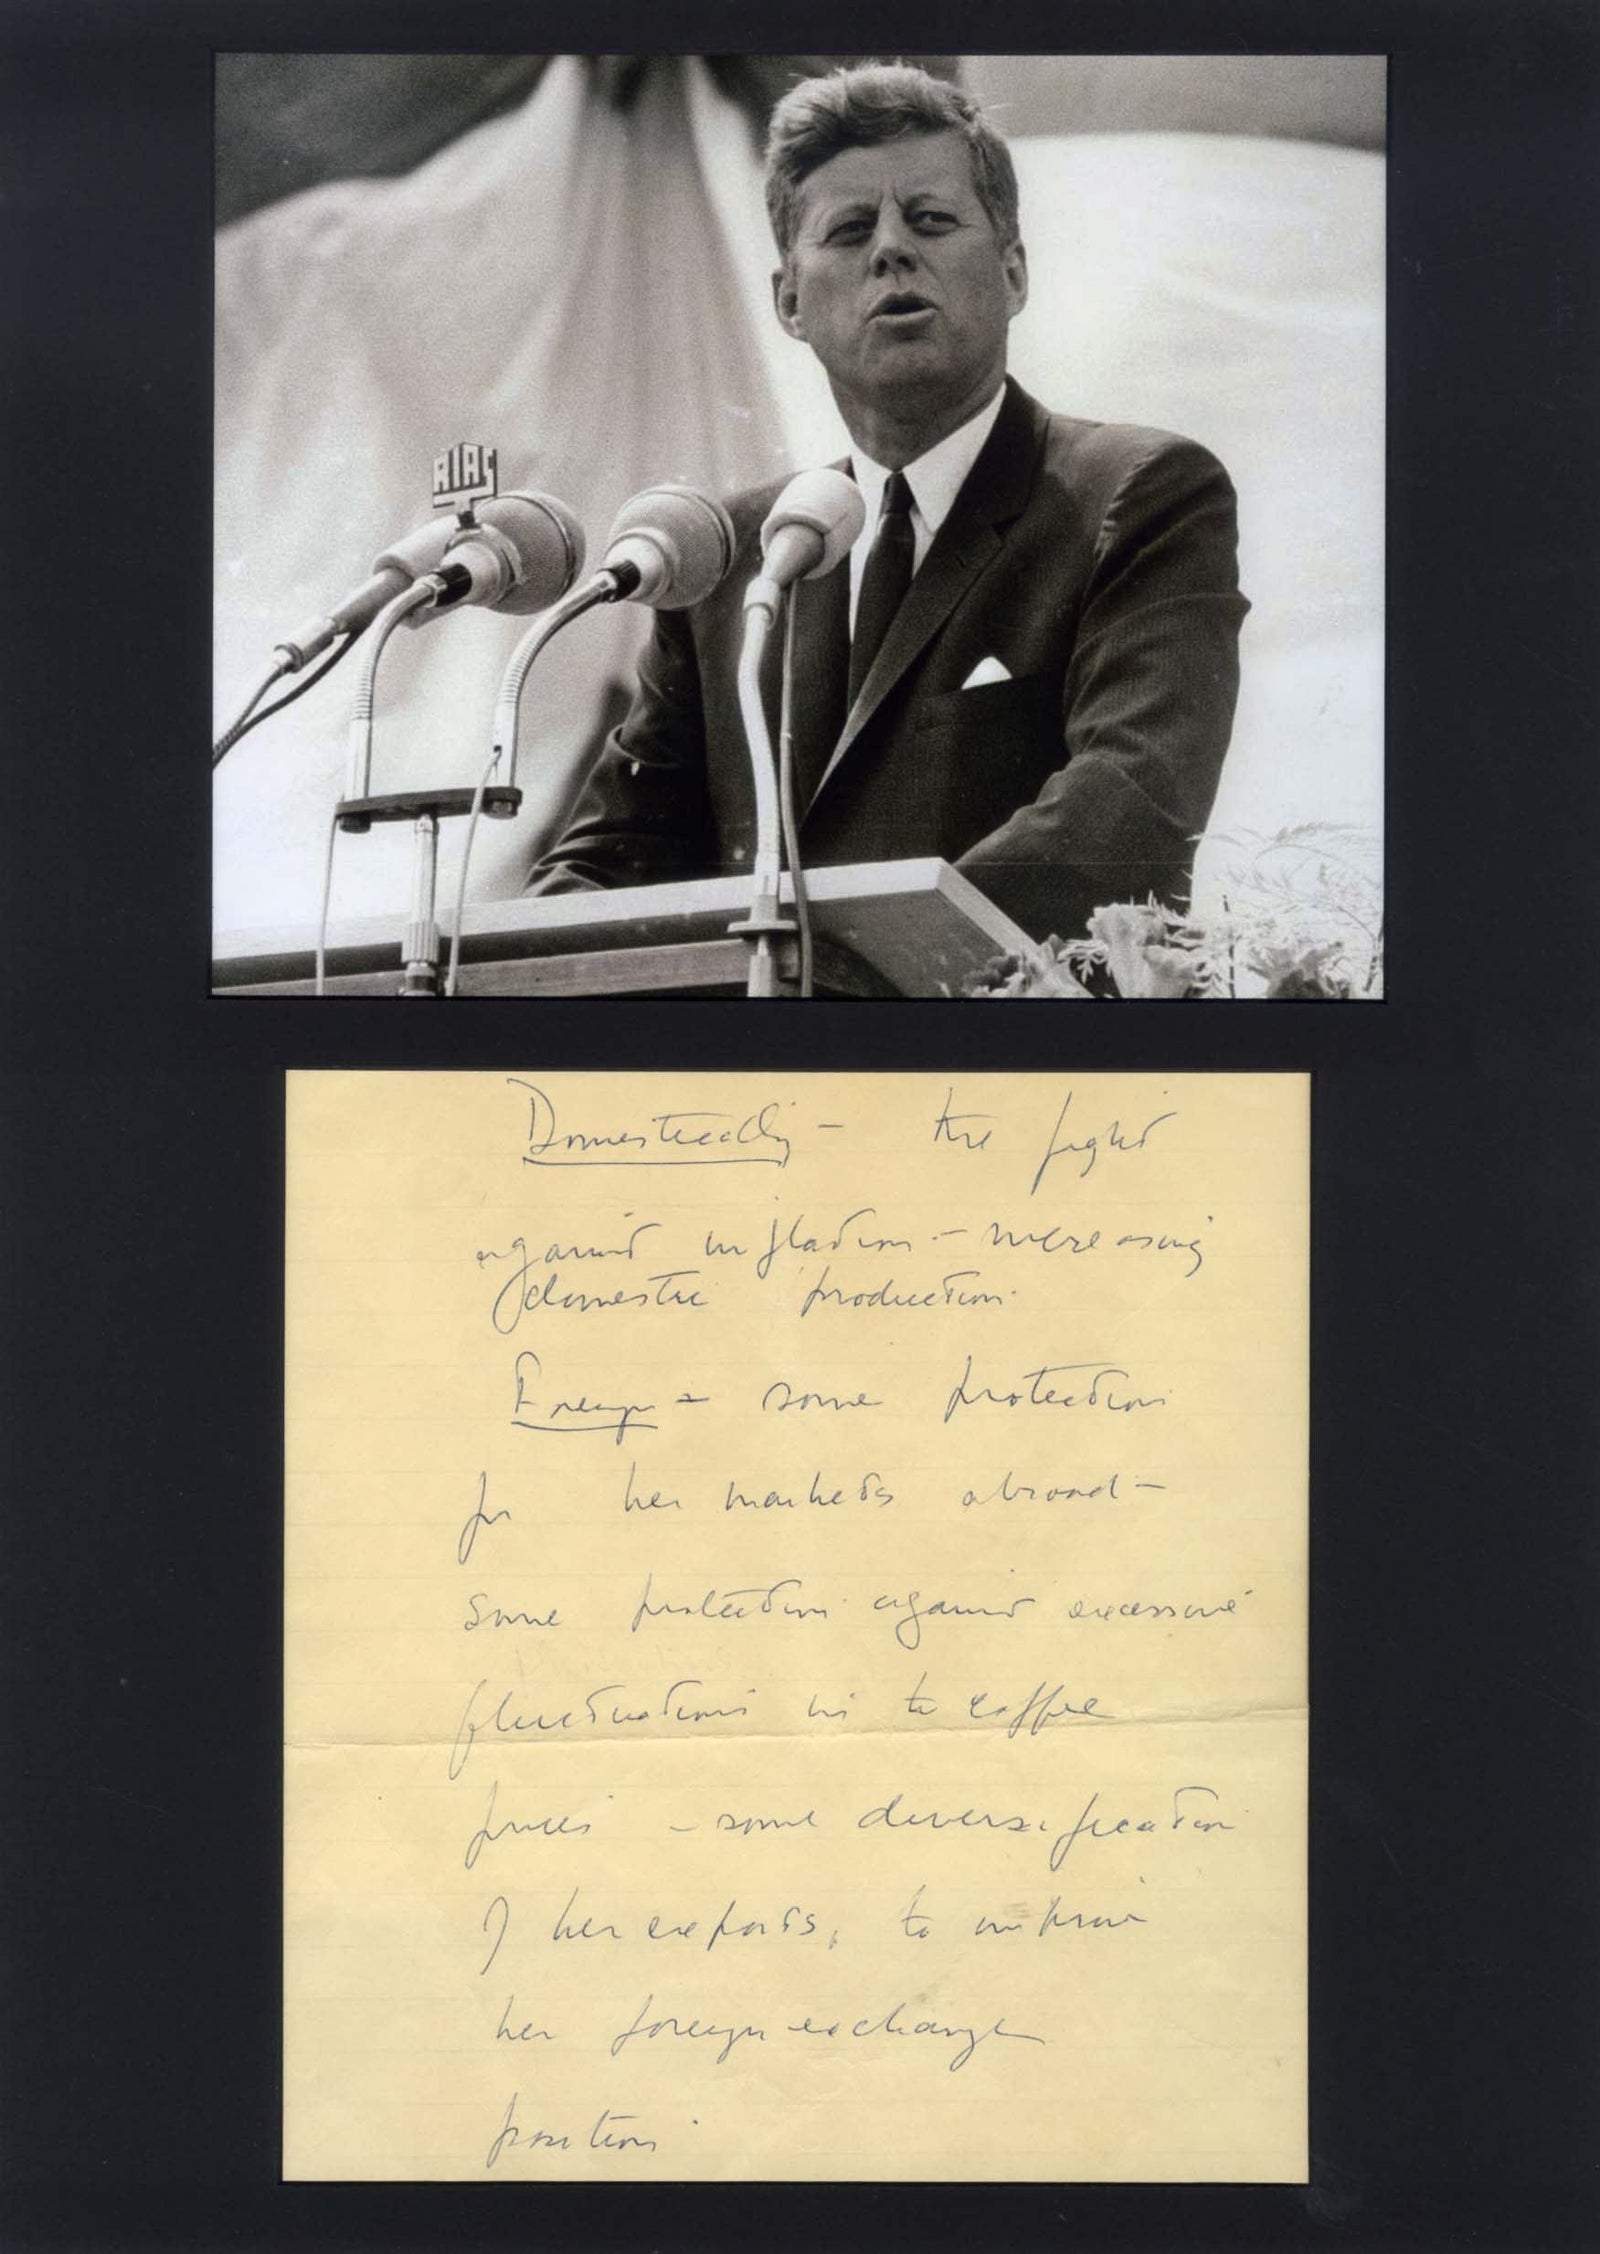 RIAS
Domestically – the fight
against inflation – increasing
domestic production.
Foreign – some protection
for her markets abroad –
some protection against excessive
fluctuations in the coffee
prices – some diversification
of her exports, to improve
her foreign exchange
position